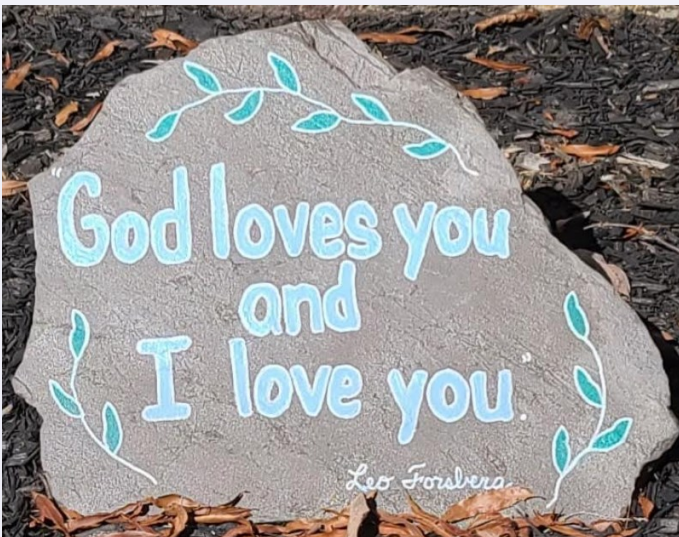 "God loves you
and
I love you."
Leo Forsberg